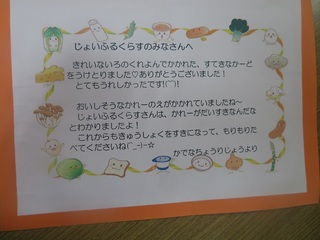 じょいふるくらすのみなさんへ
きれいないろのくれよんでかかれた、すてきなかーど
をうけとりました♡ありがとうございました！
とてもうれしかったです!(⌒⌒)!
おいしそうなかれーのえがかかれていましたね～
じょいふるくらすさんは、かれーがだいすきなんだな
とわかりましたよ！
これからもきゅうしょくをすきになって、もりもりた
べてくださいね(^_-)-☆
かでなちょうりじょうより